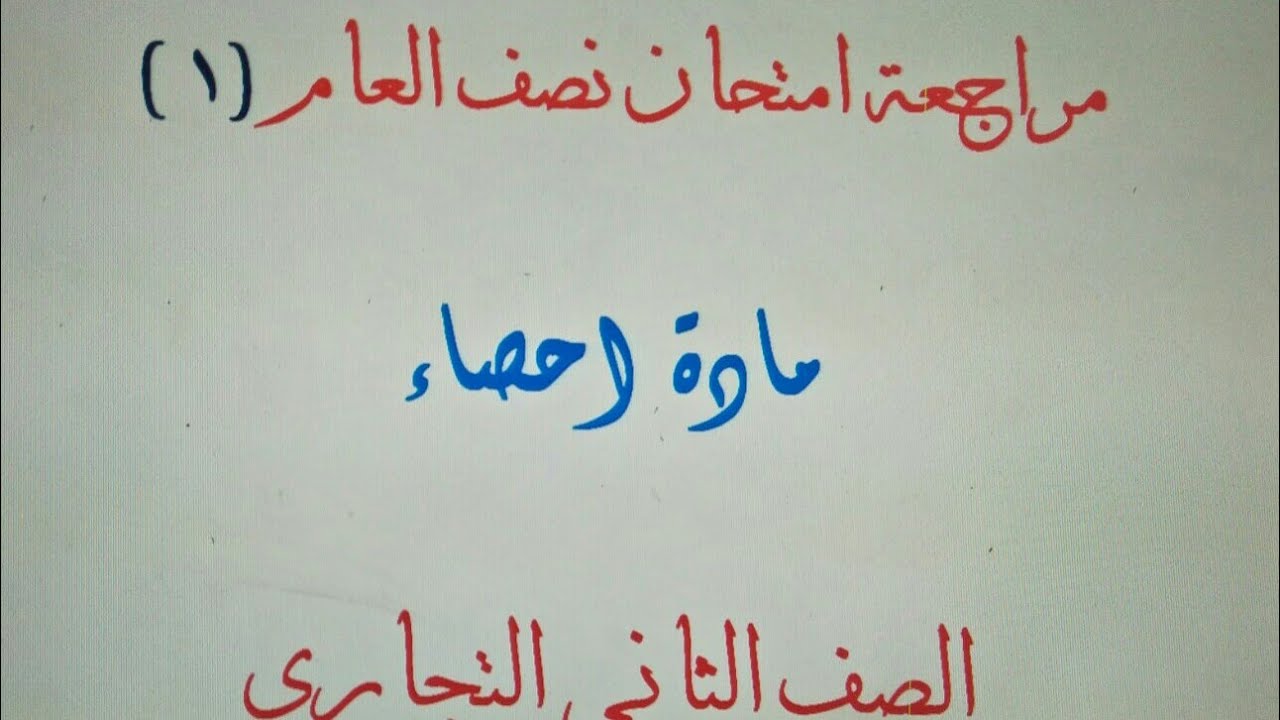 مراجعة امتحان نصف العام (١)
مادة احصاء
الصف الثانى التجارى